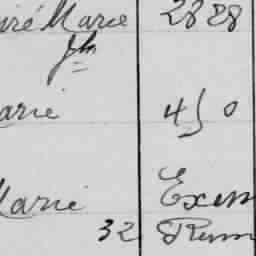 iré Marie 2828
Jh
arie 450
Marie Exem
32 Rem